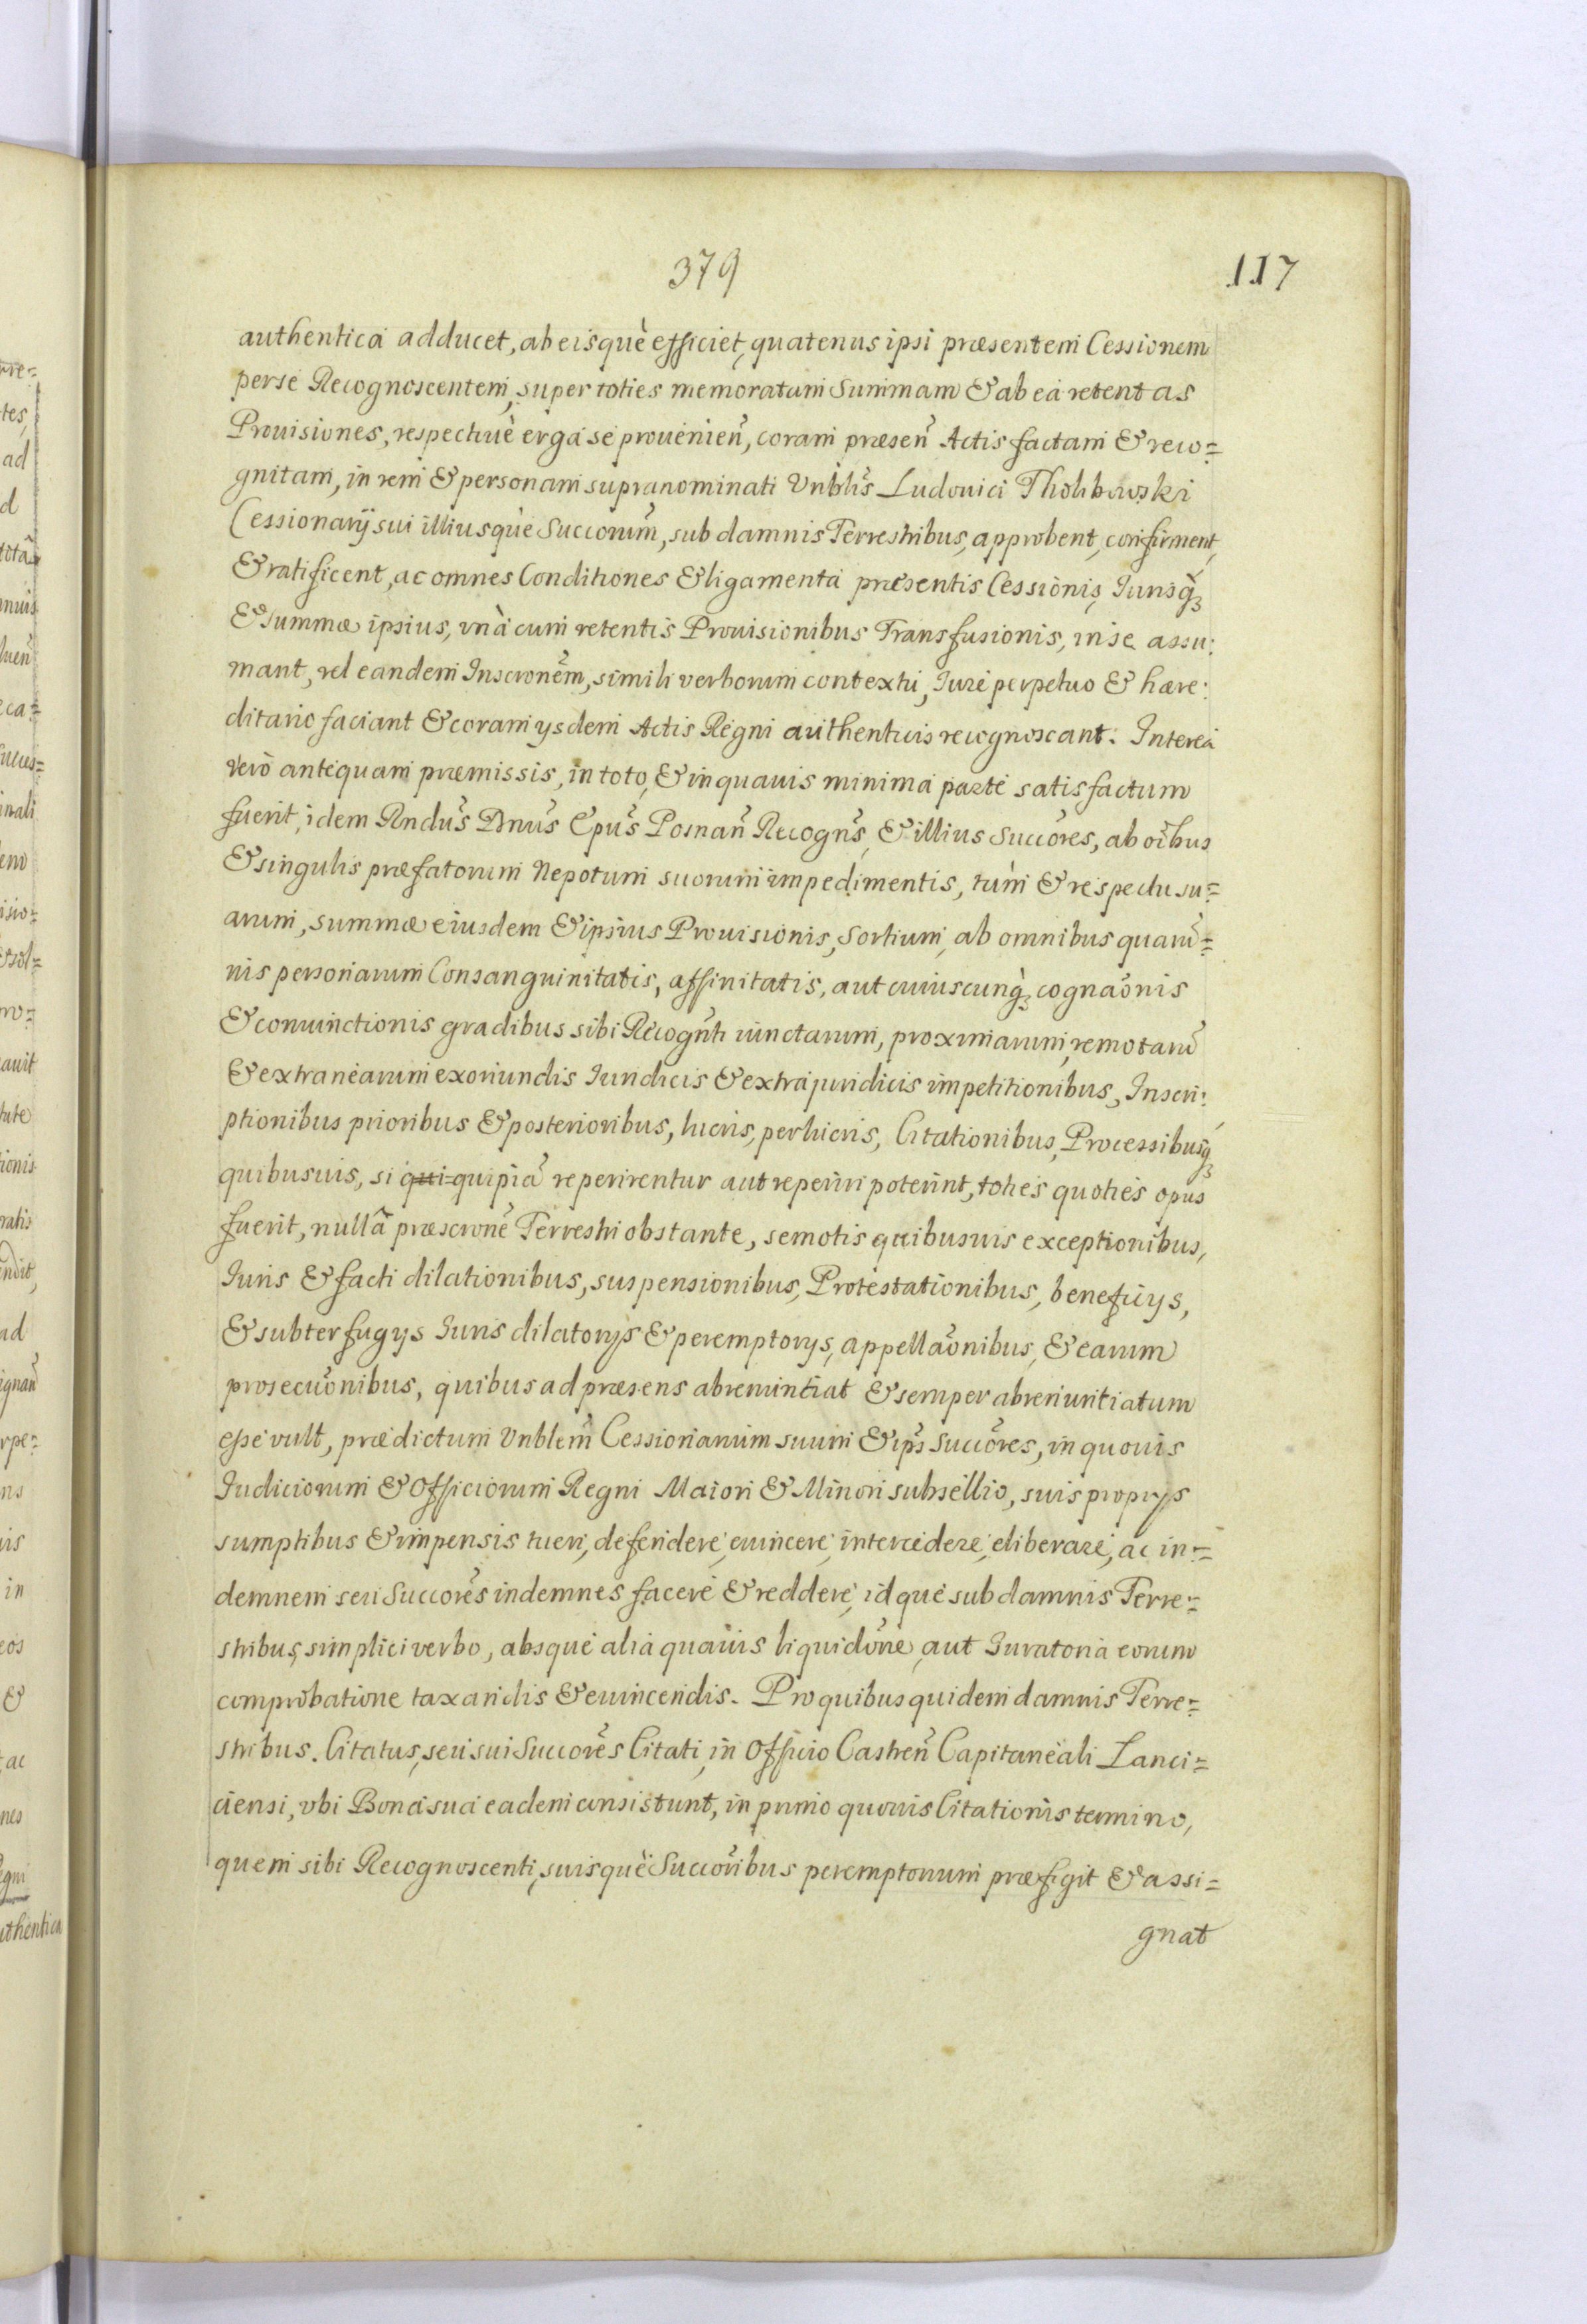 379
117
authentica adducet, ab eisquè efficiet, quatenus ipsi præsentem Cessionem
per se Recognoscentem, super toties memoratam Summam & ab ea retentas
Prouisiones, respectiuè erga se prouenien̄, coram præsen̄ Actis factam & reco=
gnitam, in rem & personam supranominati Vrīblis Ludouici Tholibowski
Cessionarij sui illiusque Succorum̄, sub damnis Terrestribus, approbent, confirment,
& ratificent, ac omnes Conditiones & ligamenta præsentis Cessionis, Iurisq̀
& Summæ ipsius, vnà cum retentis Prouisionibus Transfusionis, in se assu:
mant, vel eandem Inscronēm, simili verborum contextu, Iure perpetuo & hære:
ditario faciant & coram ysdem Actis Regni authenticis recognoscant. Interea
verò antequam præmissis, in toto, & in quauis minima parte satisfactum
fuerit, idem Rndūs Dnūs Epūs Posnan̄ Recogn̄s, & illius Succōres, ab oībus
& singulis præfatorum Nepotum suorum impedimentis, tùm & respectu su=
arum, summæ eiusdem & ipsius Prouisionis, Sortium, ab omnibus quarū=
uis personarum Consanguinitatis, affinitatis, aut cuiuscunq̀ cognaōnis
& coniunctionis gradibus sibi Recogn̄ti iunctarum, proximarum, remotarū
& extranearum exoriundis Iuridicis & extrajuridicis impetitionibus, Inscri:
ptionibus prioribus & posterioribus, lucris, perlucris, Citationibus, Processibusq́
quibusuis, si qui=quipiā reperirentur aut reperiri poterint, toties quoties opus
fuerit, nullâ præscronē Terrestri obstante, semotis quibusuis exceptionibus,
Iuris & facti dilationibus, suspensionibus, Protestationibus, beneficys,
& subterfugys Iuris dilatorys & peremptorys, appellaōnibus, & earum
prosecuōnibus, quibus ad præsens abrenuntiat & semper abrenuntiatum
esse vult, prædictum Vrīblem̄ Cessionarium suum & ips̄ Succōres, in quouis
Iudiciorum & Officiorum Regni Maiori & Minori subsellio, suis proprys
sumptibus & impensis tueri, defendere, euincere, intercedere, eliberare, ac in=
demnem seu Succorēs indemnes facere & reddere, idque sub damnis Terre=
stribus, simplici verbo, absque alia quauis liquidōne, aut Iuratoria eorum
comprobatione taxandis & euincendis. Pro quibus quidem damnis Terre=
stribus. Citatus, seu sui Succorēs Citati, in Officio Castren̄ Capitaneali Lanci=
ciensi, vbi Bona sua eadem consistunt, in primo quouis Citationis termino,
quem sibi Recognoscenti, suisquè Succorībus peremptorium præfigit & assi=
gnat